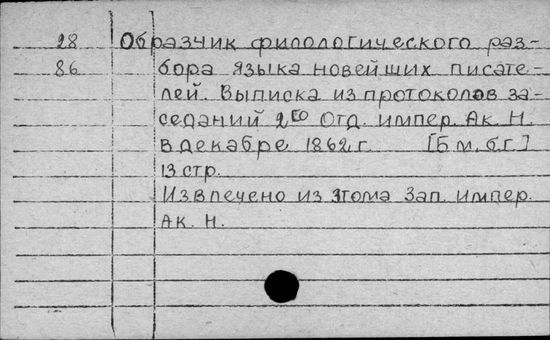 28 Образчик филологического раз-
86 бора языка новейших писате-
лей. Выписка из протоколов за-
седаний 2го Отд. импер. Ак. Н.
в декабре 1862 г. [Б м. б.г.]
13 стр.
Извлечено из тома Зап. импер.
Ак. Н.